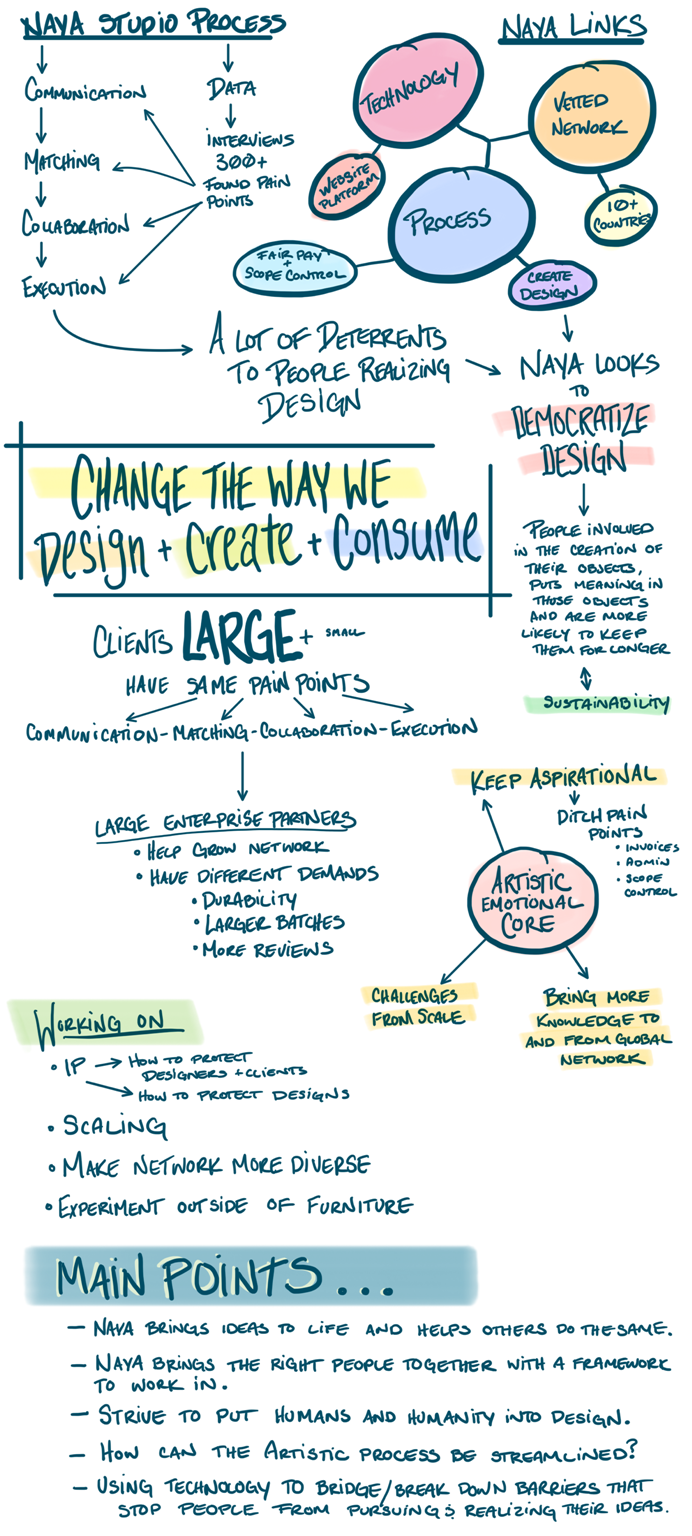 NAYA STUDIO PROCESS
COMMUNICATION
MATCHING
COLLABORATION
EXECUTION
DATA
INTERVIEWS
300+
FOUND PAIN
POINTS
NAYA LINKS
TECHNOLOGY
WEBSITE
PLATFORM
VETTED
NETWORK
10+
COUNTRIES
PROCESS
FAIR PAY
+
SCOPE CONTROL
CREATE
DESIGN
A LOT OF DETERRENTS
TO PEOPLE REALIZING
DESIGN
NAYA LOOKS
TO
DEMOCRATIZE
DESIGN
PEOPLE INVOLVED
IN THE CREATION OF
THEIR OBJECTS,
PUTS MEANING IN
THOSE OBJECTS
AND ARE MORE
LIKELY TO KEEP
THEM FOR LONGER
SUSTAINABILITY
CHANGE THE WAY WE
Design + Create + Consume
CLIENTS LARGE + SMALL
HAVE SAME PAIN POINTS
COMMUNICATION - MATCHING - COLLABORATION - EXECUTION
LARGE ENTERPRISE PARTNERS
• HELP GROW NETWORK
• HAVE DIFFERENT DEMANDS
• DURABILITY
• LARGER BATCHES
• MORE REVIEWS
KEEP ASPIRATIONAL
DITCH PAIN
POINTS
• INVOICES
• ADMIN
• SCOPE
CONTROL
ARTISTIC
EMOTIONAL
CORE
CHALLENGES
FROM SCALE
BRING MORE
KNOWLEDGE TO
AND FROM GLOBAL
NETWORK
WORKING ON
• IP → HOW TO PROTECT
DESIGNERS + CLIENTS
HOW TO PROTECT DESIGNS
• SCALING
• MAKE NETWORK MORE DIVERSE
• EXPERIMENT OUTSIDE OF FURNITURE
MAIN POINTS...
— NAYA BRINGS IDEAS TO LIFE AND HELPS OTHERS DO THE SAME.
— NAYA BRINGS THE RIGHT PEOPLE TOGETHER WITH A FRAMEWORK
TO WORK IN.
— STRIVE TO PUT HUMANS AND HUMANITY INTO DESIGN.
— HOW CAN THE ARTISTIC PROCESS BE STREAMLINED?
— USING TECHNOLOGY TO BRIDGE/BREAK DOWN BARRIERS THAT
STOP PEOPLE FROM PURSUING & REALIZING THEIR IDEAS.